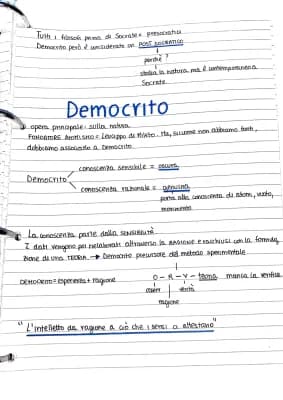 Tutti i filosofi prima di Socrate = presocratici
Democrito però è considerato un POST SOCRATICO
perché?
studia la natura, ma è contemporaneo a
Socrate
Democrito
opera principale: sulla natura
Fondatore Atomismo = Leucippo di Mileto. Ma, siccome non abbiamo fonti,
dobbiamo associarlo a Democrito
conoscenza sensibile = oscura
Democrito
conoscenza razionale = genuina
porta alla conoscenza di atomi, vuoto,
movimento
La conoscenza parte dalla SENSIBILITÀ
I dati vengono poi rielaborati attraverso la RAGIONE e racchiusi con la formula
zione di una TEORIA → Democrito precursore del metodo sperimentale
DEMOCRITO = esperienza + ragione
O - R - V - teoria manca la verifica
osserv verità
ragione
"L'intelletto dà ragione a ciò che i sensi a attestano"